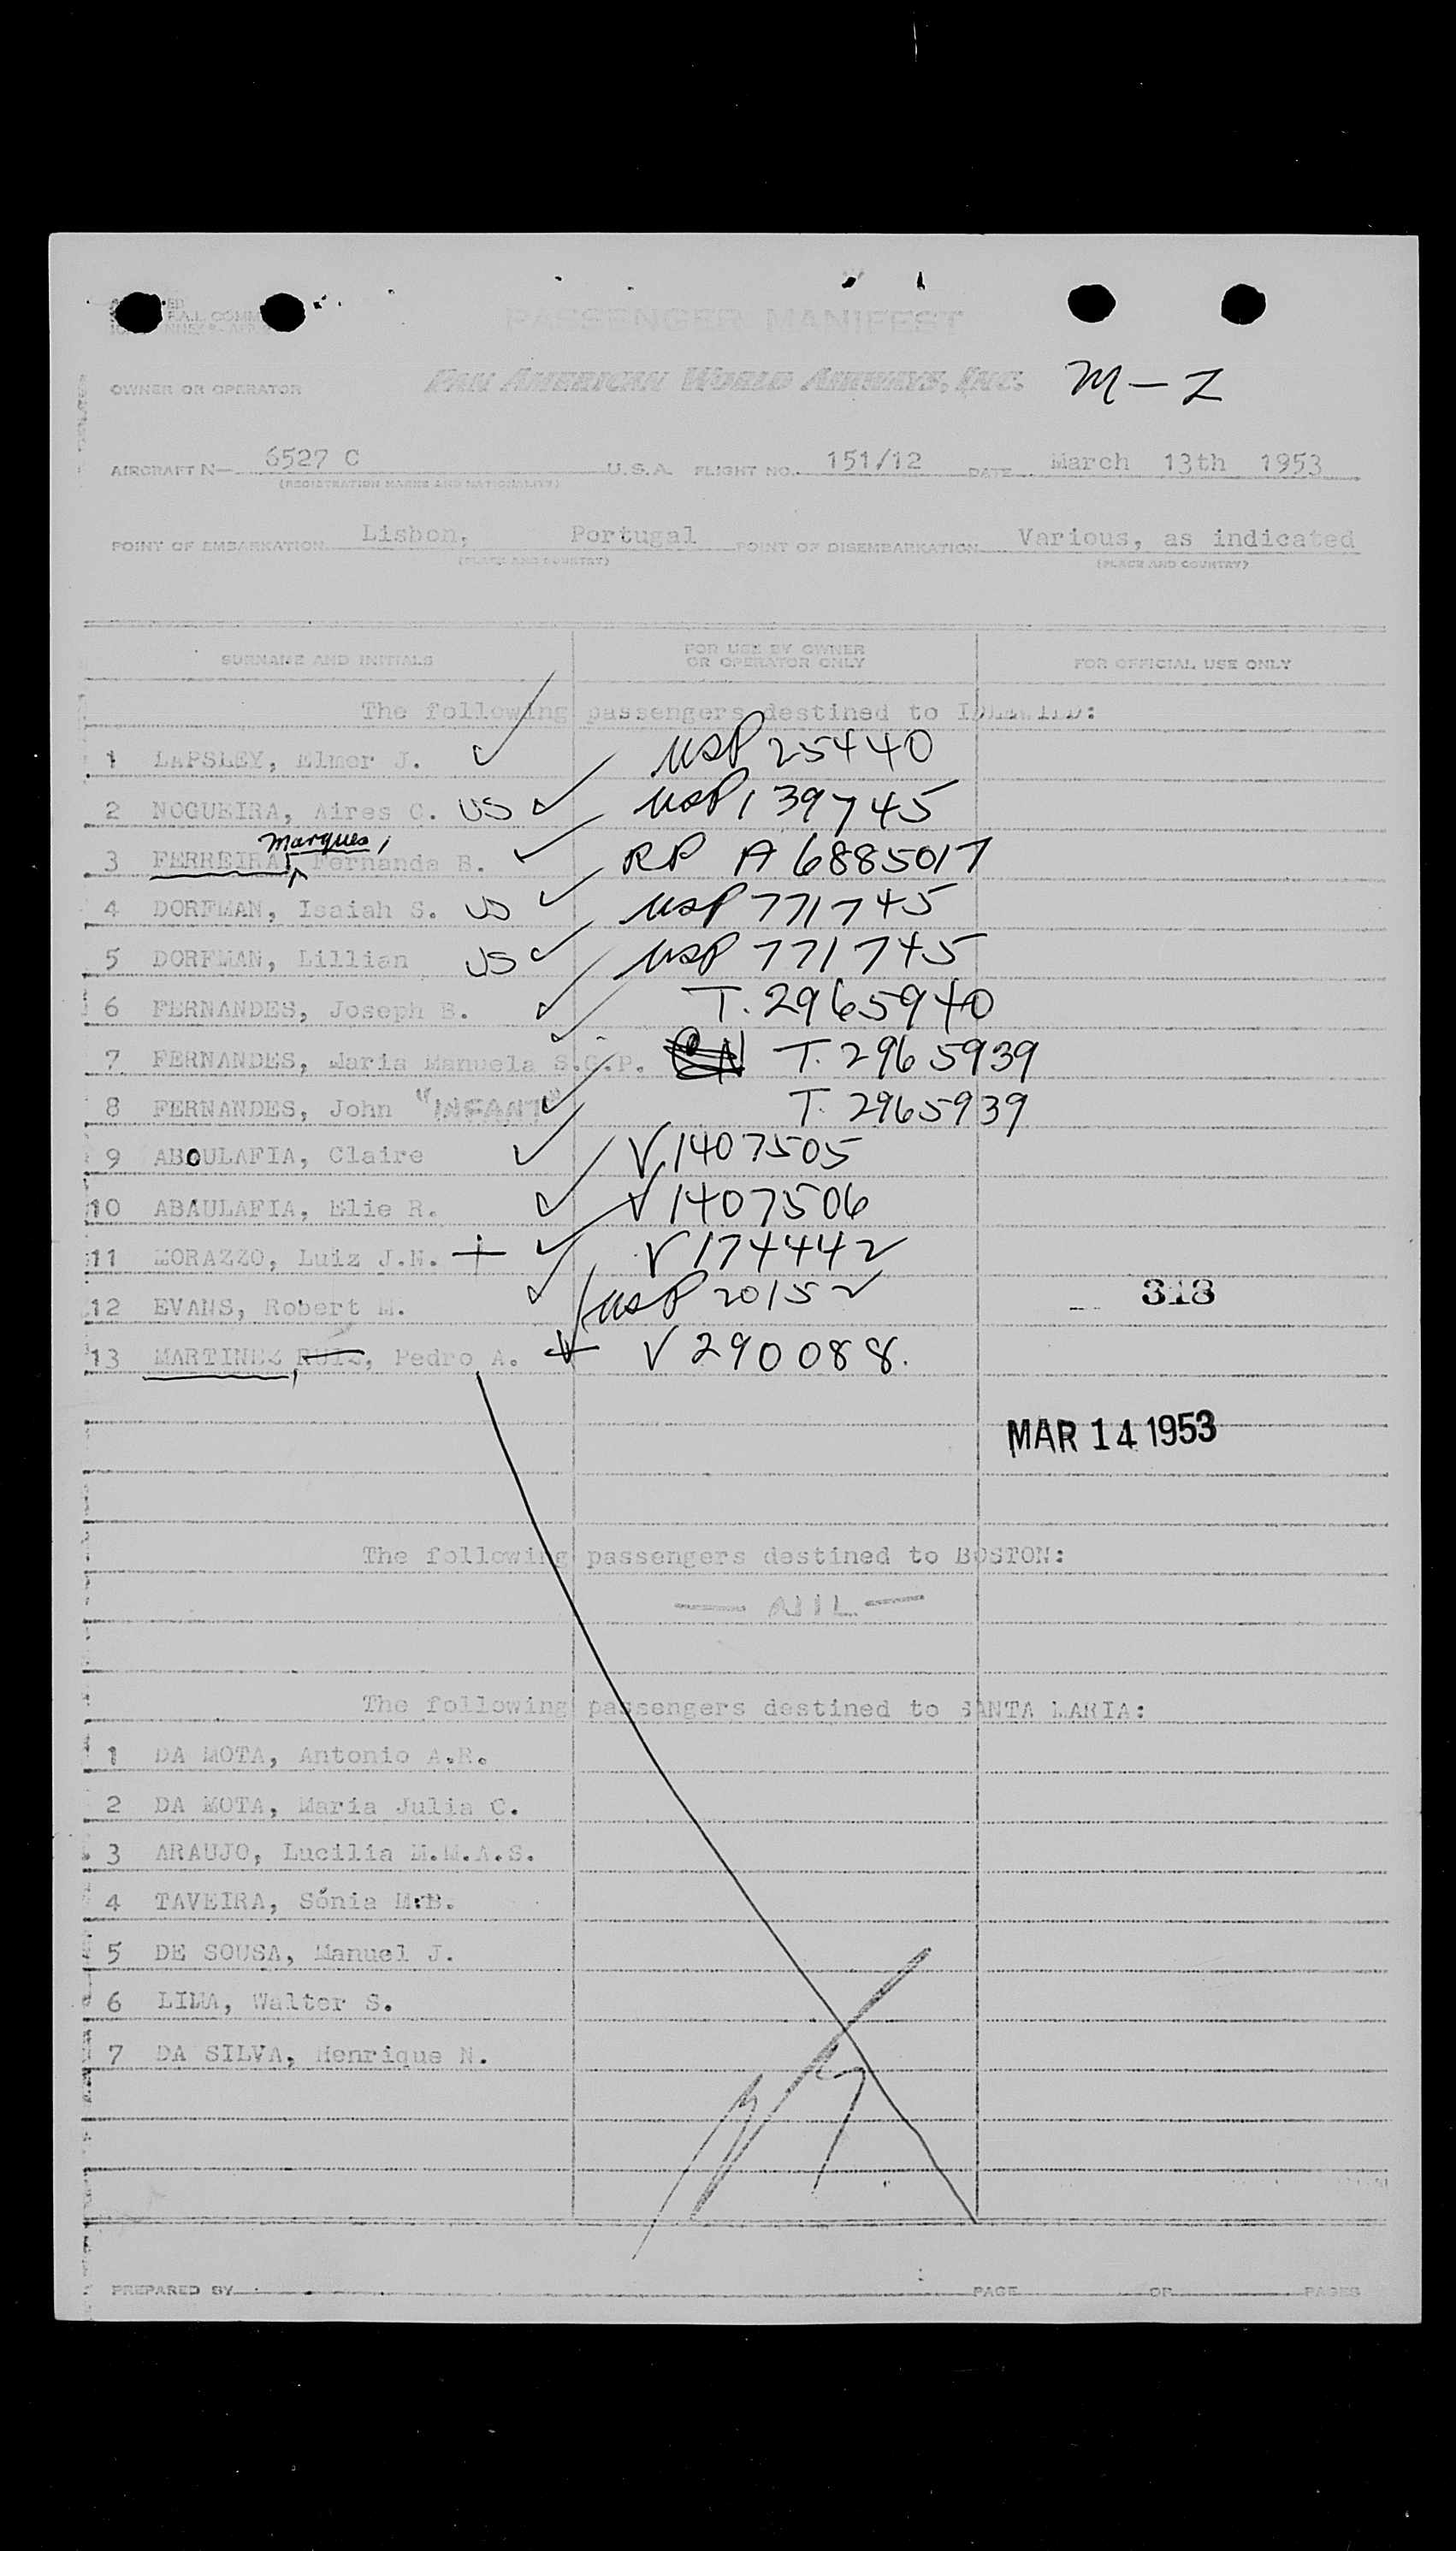 PASSENGER MANIFEST
OWNER OR OPERATOR PAN AMERICAN WORLD AIRWAYS, INC. M-Z
AIRCRAFT N— 6527 C U.S.A. FLIGHT NO. 151/12 DATE March 13th 1953
(REGISTRATION MARKS AND NATIONALITY)
POINT OF EMBARKATION Lisbon, Portugal POINT OF DISEMBARKATION Various, as indicated
(PLACE AND COUNTRY) (PLACE AND COUNTRY)
SURNAME AND INITIALS FOR USE BY OWNER OR OPERATOR ONLY FOR OFFICIAL USE ONLY
The following passengers destined to IDLEWILD:
1 LAPSLEY, Elmer J. ✓ USP 25440
2 NOGUEIRA, Aires C. US ✓ USP 139745
marques,
3 FERREIRA, Fernanda B. ✓ RP A 6885017
4 DORFMAN, Isaiah S. US ✓ USP 771745
5 DORFMAN, Lillian US ✓ USP 771745
6 FERNANDES, Joseph B. ✓ T. 2965940
7 FERNANDES, Maria Manuela S.C.P. ✓ T. 2965939
8 FERNANDES, John "INFANT" ✓ T. 2965939
9 ABOULAFIA, Claire ✓ V 1407505
10 ABAULAFIA, Elie R. ✓ V 1407506
11 MORAZZO, Luiz J.N. + ✓ V 174442
12 EVANS, Robert M. ✓ USP 20152
318
13 MARTINEZ RUIZ, Pedro A. + V 290088.
MAR 14 1953
The following passengers destined to BOSTON:
— NIL —
The following passengers destined to SANTA MARIA:
1 DA MOTA, Antonio A.R.
2 DA MOTA, Maria Julia C.
3 ARAUJO, Lucilia M.M.A.S.
4 TAVEIRA, Sónia M.B.
5 DE SOUSA, Manuel J.
6 LIMA, Walter S.
7 DA SILVA, Henrique N.
PREPARED BY PAGE OF PAGES